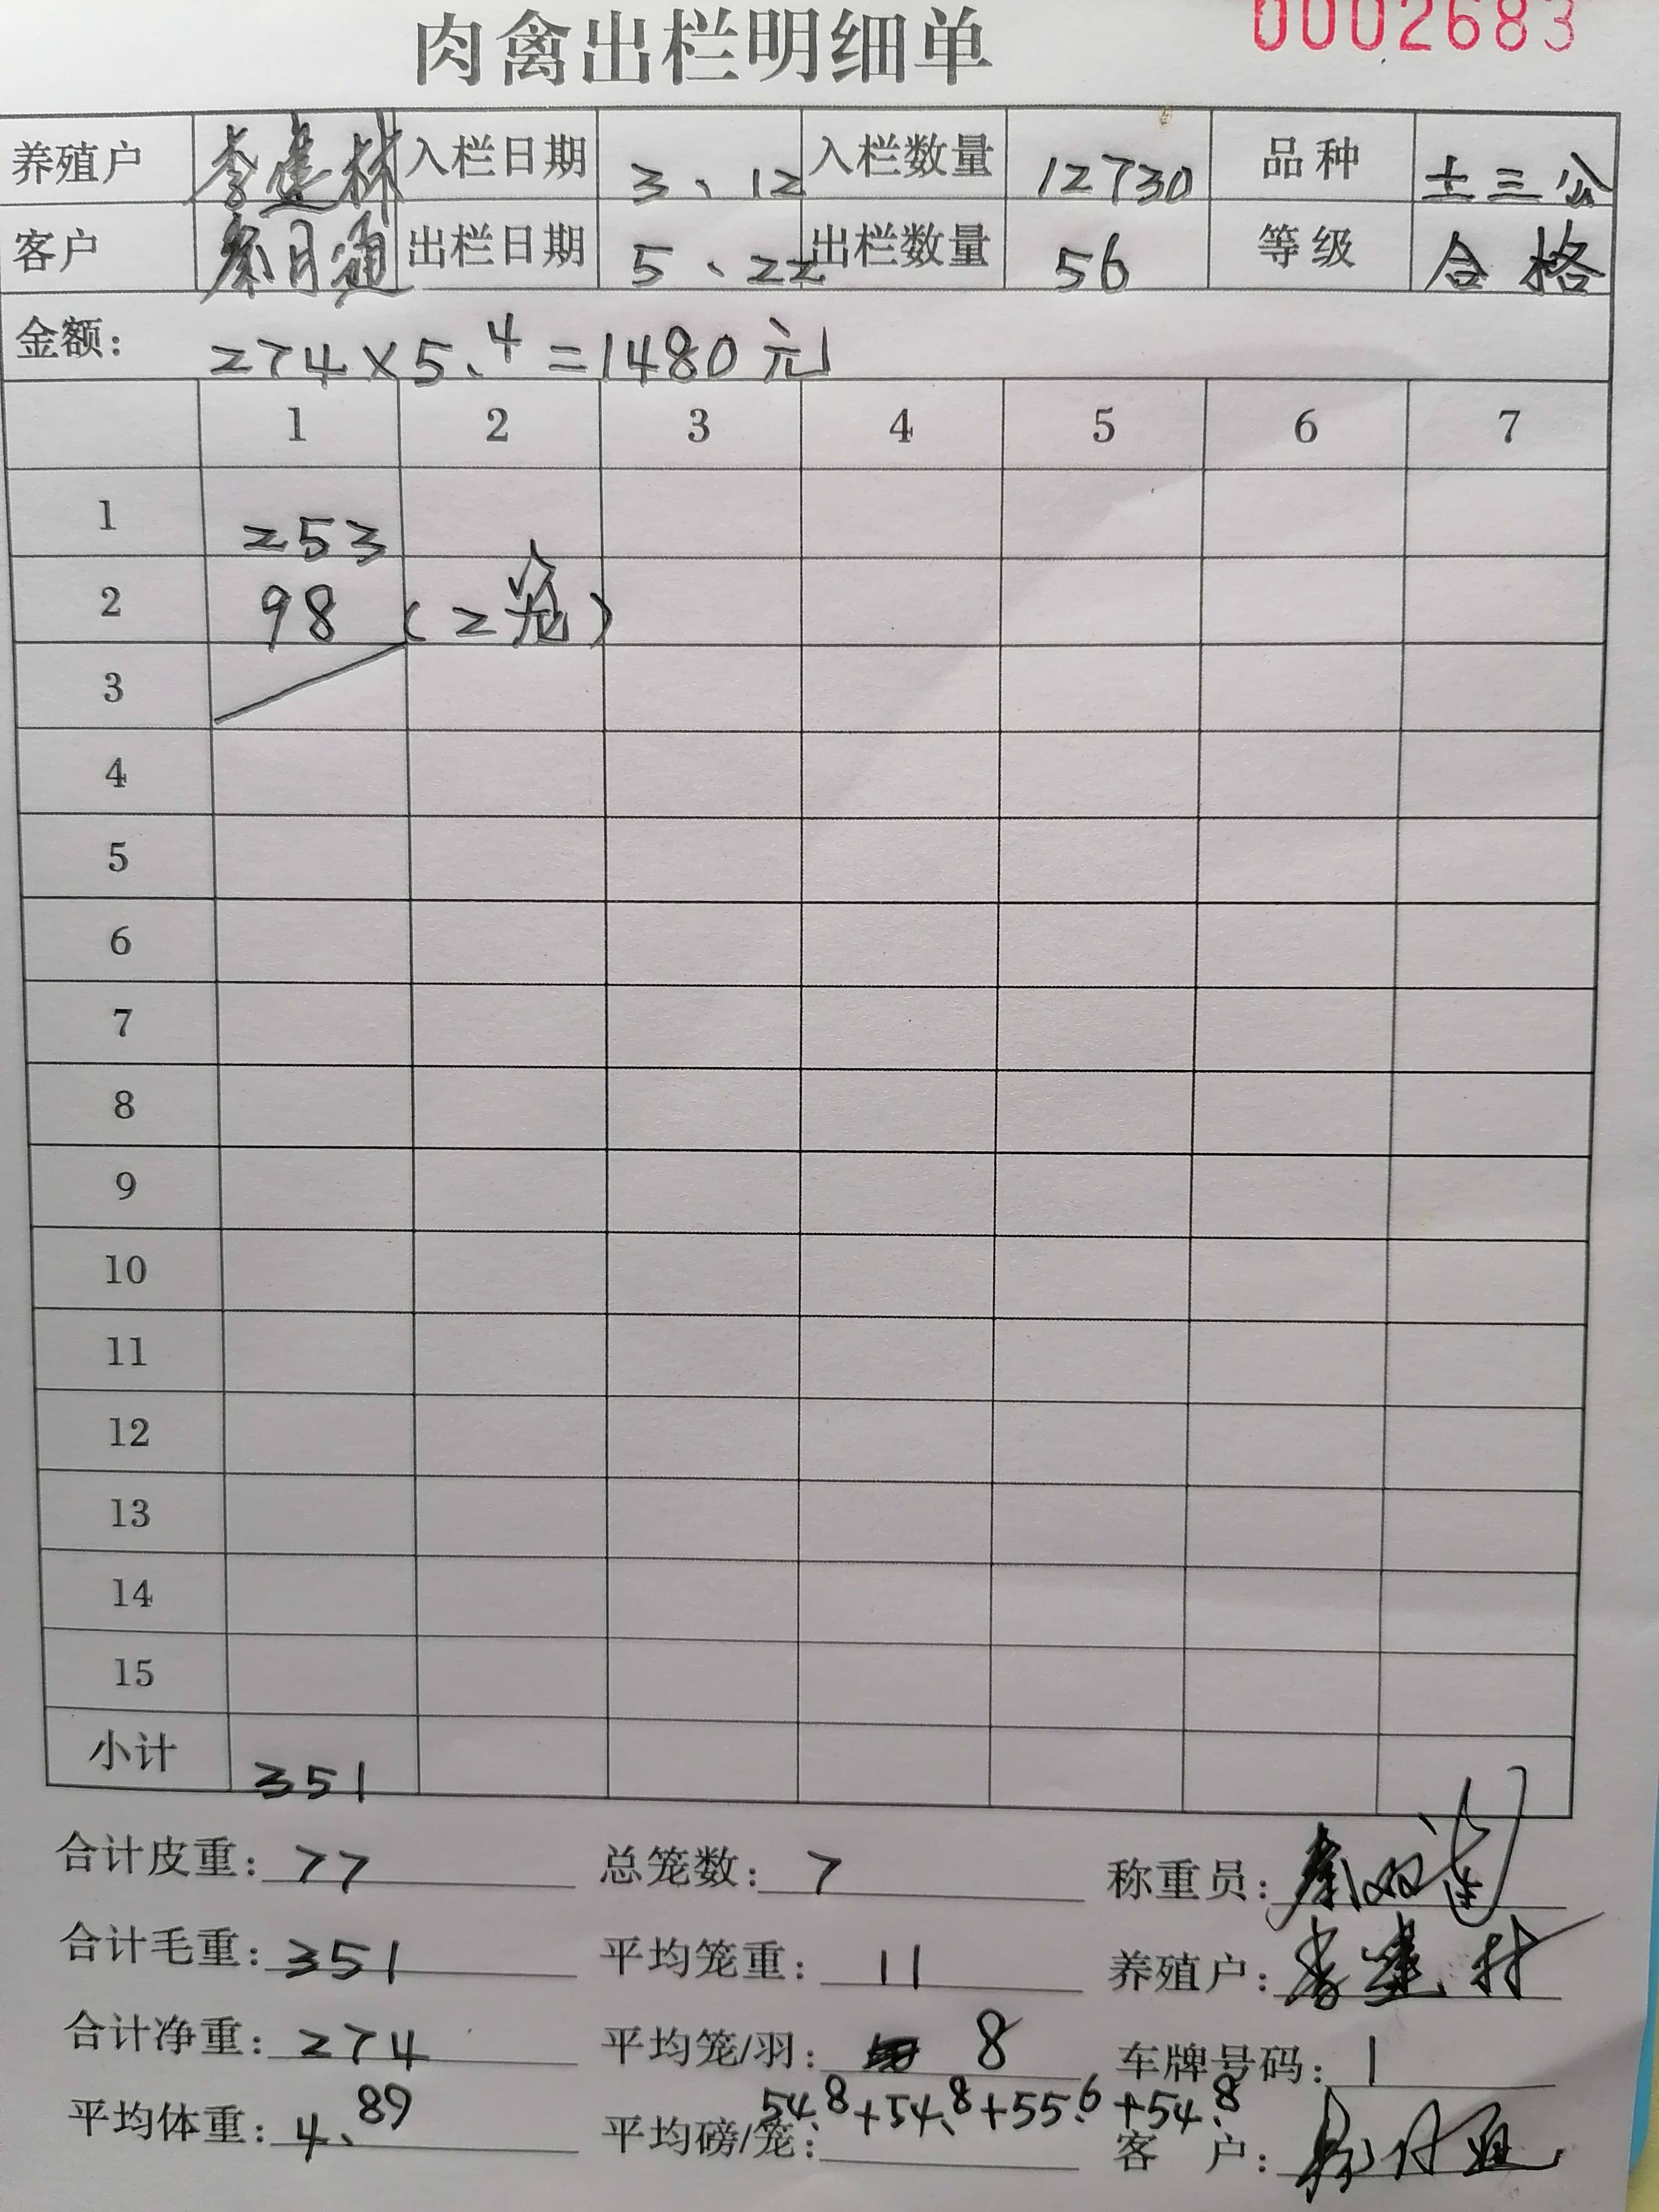 肉禽出栏明细单 0002683
养殖户 李建林 入栏日期 3、12 入栏数量 12730 品种 土三公
客户 秦月通 出栏日期 5、22 出栏数量 56 等级 合格
金额: 274×5.4=1480元
1 2 3 4 5 6 7
1 253
2 98 (2笼)
3
4
5
6
7
8
9
10
11
12
13
14
15
小计 351
合计皮重: 77 总笼数: 7 称重员:
合计毛重: 351 平均笼重: 11 养殖户: 李建林
合计净重: 274 平均笼/羽: 8 车牌号码: 1
平均体重: 4.89 平均磅/笼: 54.8+54.8+55.6+54.8 客 户: